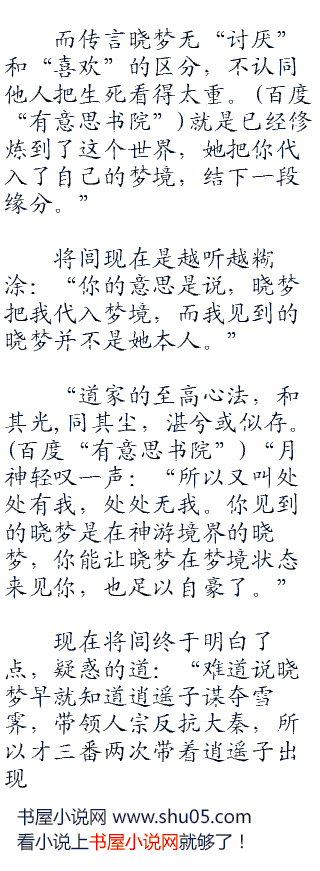 而传言晓梦无“讨厌”
和“喜欢”的区分，不认同
他人把生死看得太重。(百度
“有意思书院”)就是已经修
炼到了这个世界，她把你代
入了自己的梦境，结下一段
缘分。”
将闾现在是越听越糊
涂：“你的意思是说，晓梦
把我代入梦境，而我见到的
晓梦并不是她本人。”
“道家的至高心法，和
其光,同其尘，湛兮或似存。
(百度“有意思书院”)“月
神轻叹一声：“所以又叫处
处有我，处处无我。你见到
的晓梦是在神游境界的晓
梦，你能让晓梦在梦境状态
来见你，也足以自豪了。”
现在将闾终于明白了
点，疑惑的道：“难道说晓
梦早就知道逍遥子谋夺雪
霁，带领人宗反抗大秦，所
以才三番两次带着逍遥子出
现
书屋小说网 www.shu05.com
看小说上书屋小说网就够了！